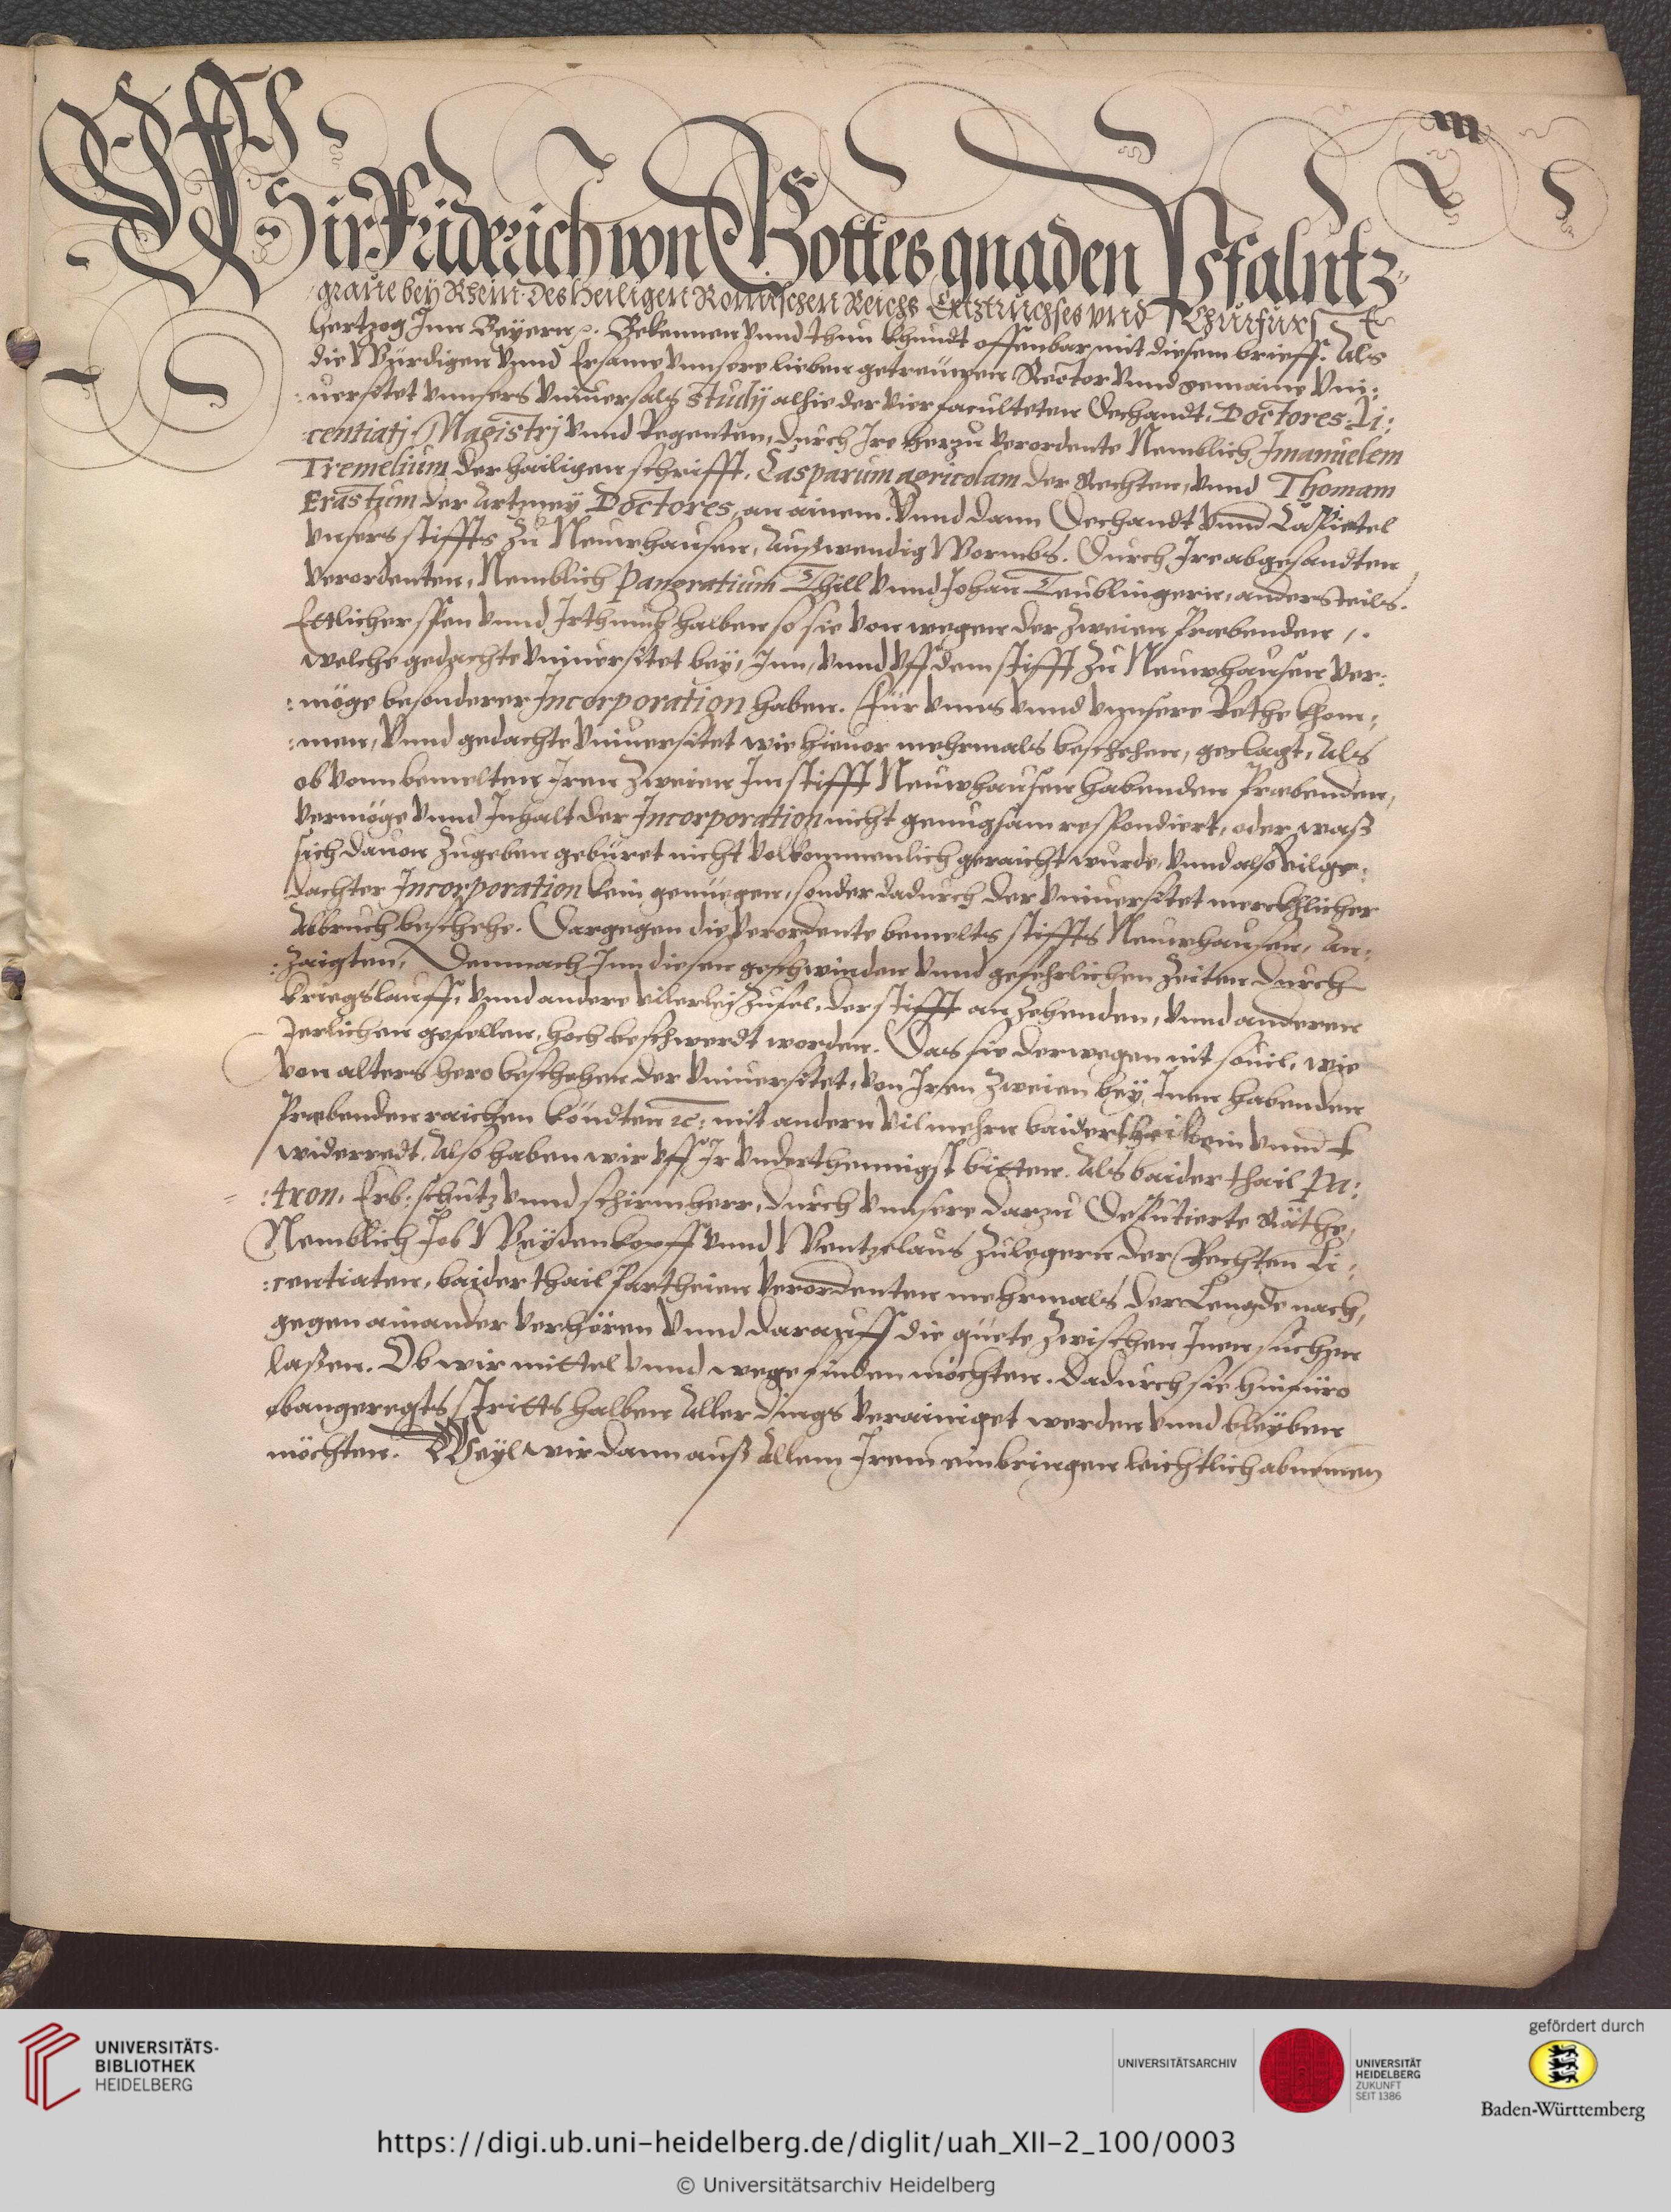 m
Wir Friderich von Gottes gnaden Pfalntz-
graue bey Rhein des Heiligen Romischen Reichs Ertztruchses vnd Churfurst
Hertzog Jnn Beyern ꝛc. Bekennen vnnd thun khundt offenbar mit diesem brieff. Als
die Würdigen vnnd Ersame vnnsere lieben getreüwen Rector vnnd gemaine Vni:
:uersitet vnnsers vniuersals Studij alhie der vier faculteten Dechandt, Doctores, Li:
:centiatj Magistrj vnnd Regenten, durch Ire herzu verordente Nemblich Jmanuelem
Tremelium der hailigen schrifft. Casparum agricolam der Rechten, vnnd Thomam
Erastum der Artzney Doctores, an ainem. Vnnd dann Dechandt vnnd Capittel
vnsers stiffts zu Neuwhausen, Außwendig Wormbs. Durch Ire abgesandten
verordenten, Nemblich Pangratium Thill vnnd Johan Teublingern, anders teils.
Ettlicher spen vnnd Irthumb halben so sie von wegen der zweien Præbenden,
welche gedachte vniuersitet bey, Inn, vnnd vff dem stifft zu Neuwhausen ver:
:möge besonderer Incorporation haben. Für vnns vnnd vnnsere Rethe khom:
:men, Vnnd gedachte vniuersitet wie hieuor mehrmals beschehen, geclagt, Als
ob vonn bemelten Iren zweien Im stifft Neuwhausen habenden Præbenden,
vermöge vnnd Inhalt der Incorporation nicht genugsam respondiert, oder waß
sich dauon zugeben gebüret nicht volkommenlich geraicht wurde, vnnd also vilge:
dachter Incorporation kein genuegen, sonder dadurch der vniuersitet merckhlicher
Abbruch beschehe. Dargegen die verordente bemelts stiffts Neuwhausen, An:
:zaigten, Demnach Inn diesen geschwinden vnnd gefehrlichen Zeiten durch
kriegslauff, vnnd andere vilerley zufel, der stifft an Zehenden, vnnd anderen
Jerlichen gefellen, hoch beschwerdt worden. Das sie derwegen nit souil, wie
von alters hero beschehen der vniuersitet, von Iren zweien bey Inen habenden
Præbenden raichen köndten ꝛc: mit andern vil mehrn baidertheil ein vnnd
widerredt, Also haben wir vff Ir vnderthenigst bitten. Als baider thail Pa:
:tron, Erb: schutz vnnd schirmherr, durch vnnsere darzu Deputierte Räthe,
Nemblich Job Weydenkopff vnnd Wentzelaus Zulegern der Rechten Li:
:centiaten, baider thail Partheien verordenten mehrmals der Lengde nach,
gegen ainander verhören vnnd darauff die guete zwischen Inen suchen
laßen. Ob wir mittel vnnd wege finden möchten. Dadurch sie hinfüro
obangeregts stritts halben Aller dings verainiget werden vnnd bleyben
möchten. Weyl wir dann auß Allem Irem einbringen leichtlich abnemen
UNIVERSITÄTS-
BIBLIOTHEK
HEIDELBERG
UNIVERSITÄTSARCHIV
UNIVERSITÄT
HEIDELBERG
ZUKUNFT
SEIT 1386
gefördert durch
Baden-Württemberg
https://digi.ub.uni-heidelberg.de/diglit/uah_XII-2_100/0003
© Universitätsarchiv Heidelberg